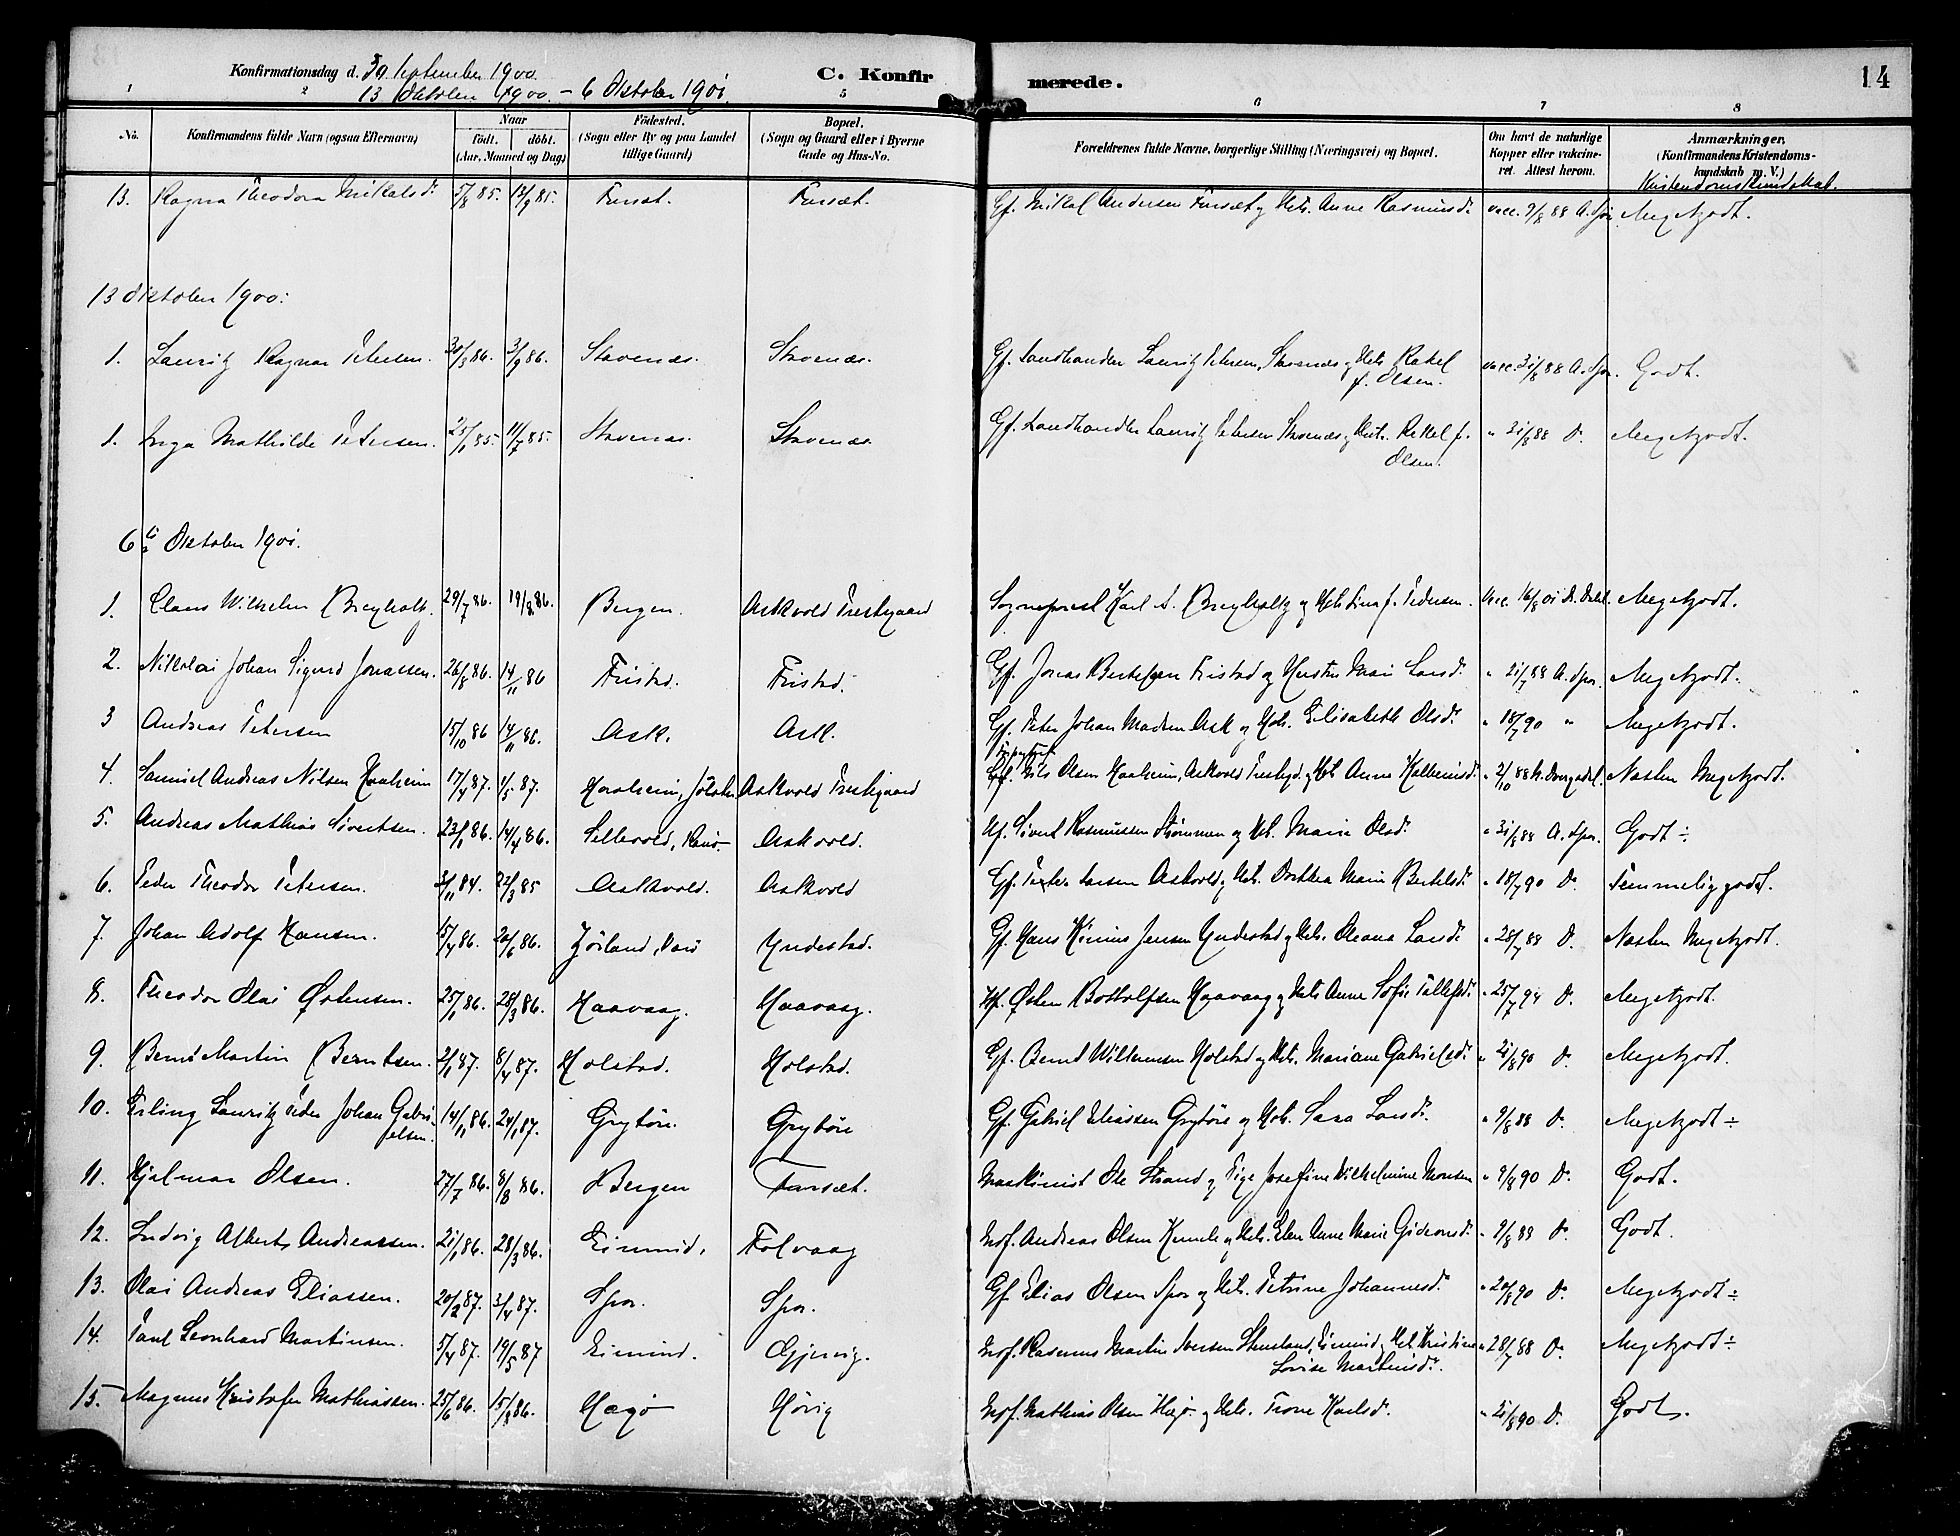 Konfirmationsdag d. 30 September 1900. C. Konfirmerede. 14
13 Oktober 1900 – 6 Oktober 1901.
1 2 5 6 7 8
No. Konfirmandens fulde Navn (ogsaa Efternavn) Naar født. døbt. (Aar, Maaned og Dag) Födested. (Sogn eller By og paa Landet tillige Gaard) Bopæl. (Sogn og Gaard eller i Byerne Gade og Hus-No. Forældrenes fulde Navne, borgerlige Stilling (Næringsvei) og Bopæl. Om havt de naturlige Kopper eller vakcineret. Attest herom. Anmærkninger. (Konfirmandens Kristendomskundskab m. V.)
Kristendomskundskab.
13. Ragna Theodora Mikalsdr. 5/8 85. 13/9 85. Fursæt. Fursæt. Gf. Mikal Andersen Fursæt og Hstr. Anne Rasmusdr. vacc. 9/8 88 A. Spor. Megetgodt.
13 Oktober 1900:
1. Lauritz Ragnar Petersen. 30/3 86. 3/9 86. Stavenæs. Stavenæs. Gf. Landhandler Lauritz Petersen, Stavenæs og Hstr. Rakel f. Olsen. vacc. 31/8 88 A. Spor. Godt.
1. Inga Mathilde Petersen. 25/1 85. 11/7 85. Stavenæs. Stavenæs. Gf. Landhandler Lauritz Petersen Stavenæs og Hstr. Rakel f. Olsen. " 31/8 88 Do. Megetgodt.
6te Oktober 1901.
1. Claus Wilhelm Breyholtz. 29/7 86. 19/8 86. Bergen. Askvold Prestegaard Sogneprest Karl A. Breyholtz og Hstr. Lina f. Pedersen. Vacc. 16/8 01 Megetgodt.
2. Nikolai Johan Sigurd Jonassen. 26/8 86. 14/11 86 Fristad. Fristad. Gf. Jonas Bertelsen Fristad og Hustru Mari Larsdr. " 21/7 88 A. Spor. Megetgodt.
3 Andreas Petersen 15/10 86 14/11 86. Ask. Ask. Gf. Peter Johan Madsen Ask og Hstr. Elisabeth Olsdr. " 18/7 90 " Megetgodt.
4. Samuel Andreas Nilsen Haaheim 17/4 87. 1/5 87. Haaheim, Jölster Askvold Prestegaard Nils Olsen Haaheim, Askvold Prestegd. og Hstr. Anne " 2/10 88 Næsten Megetgodt.
5. Andreas Mathias Sivertsen. 23/1 86. 14/4 86. Sellevold, Askvold. Hf. Sivert Rasmussen Strømmen og Hstr. Marie Olsdr. " 31/8 88 A. Spor. Godt ÷
6. Peder Theodor Petersen. 3/11 84. 22/3 85 Askvold. Askvold Gf. Peter Larsen Askvold og Hstr. Dorthea Marie Bertelsdr. " 18/7 90 Do. Temmelig godt.
7. Johan Adolf Hansen. 5/4 86. 20/6 86. Yndestad. Gf. Hans Jensen Yndestad og Hstr. Oleana Larsdr. " 28/7 88 Do. Næsten Megetgodt.
8. Theodor Olai Østensen. 25/1 86. 28/3 86. Haavaag. Haavaag. Hf. Østen Bottolfsen Haavaag og Hstr. Anne Sofie " 25/7 94 Do. Megetgodt.
9. Bernt Martin Berntsen. 2/1 87. 8/4 87. Holstad. Holstad. Gf. Bernt Willumsen Holstad og Hstr. Mariane Gabrielsdr. " 21/8 90 Do. Megetgodt.
10. Erling Lauritz Peder Johan Gabrielsen. 14/11 86. 24/1 87. Grytöre. Grytöre Gf. Gabriel Eliassen Grytöre og Hstr. Sara Larsdr. " 9/8 88 Do. Megetgodt ÷
11. Hjalmar Olsen. 27/7 86. 8/8 86. Bergen Fursæt. Maskinist Ole Strand og Pige Josefine Vilhelmine Monsen " 9/8 90 Do. Godt.
12. Ludvig Alberth Andreassen. 21/1 86. 28/3 86. Eimind. Folvaag Indf. Andreas Olsen og Hstr. Elen Anne Marie Gideonsdr. " 9/8 88 Do. Godt.
13. Olai Andreas Eliassen. 20/2 87. 3/4 87. Spor. Spor. Gf. Elias Olsen Spor og Hstr. Petrine Johannesdr. " 20/8 90 Do. Megetgodt ÷
14. Paul Leonhard Martinsen. 5/4 87. 19/5 87 Eimind. Gjervig. Indf. Rasmus Martin Iversen Stensland, Eimind og Hstr. Kristine Lovise Martinsdr. " 28/7 88 Do. Megetgodt ÷
15. Magnus Kristofer Mathiassen. 25/6 86. 15/8 86. Hægö Hörvig Indf. Mathias Olsen Hægö og Hstr. Trone Karlsdr. " 21/8 90 Do. Godt.